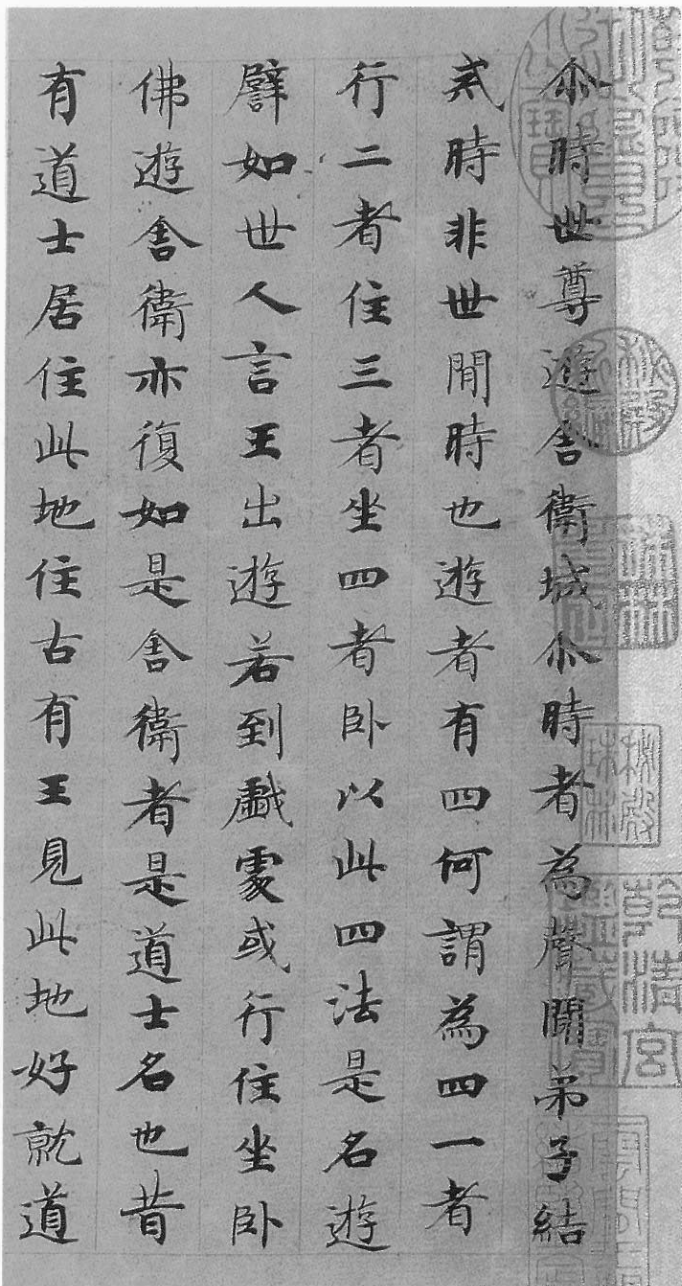 尒時世尊遊舎衛城尒時者為聲聞弟子結
戒時非世閒時也遊者有四何謂為四一者
行二者住三者坐四者卧以此四法是名遊
譬如世人言王出遊若到戲處或行住坐卧
佛遊舎衛亦復如是舎衛者是道士名也昔
有道士居住此地住古有王見此地好就道
乾清宮鑒藏寳
秘殿珠林